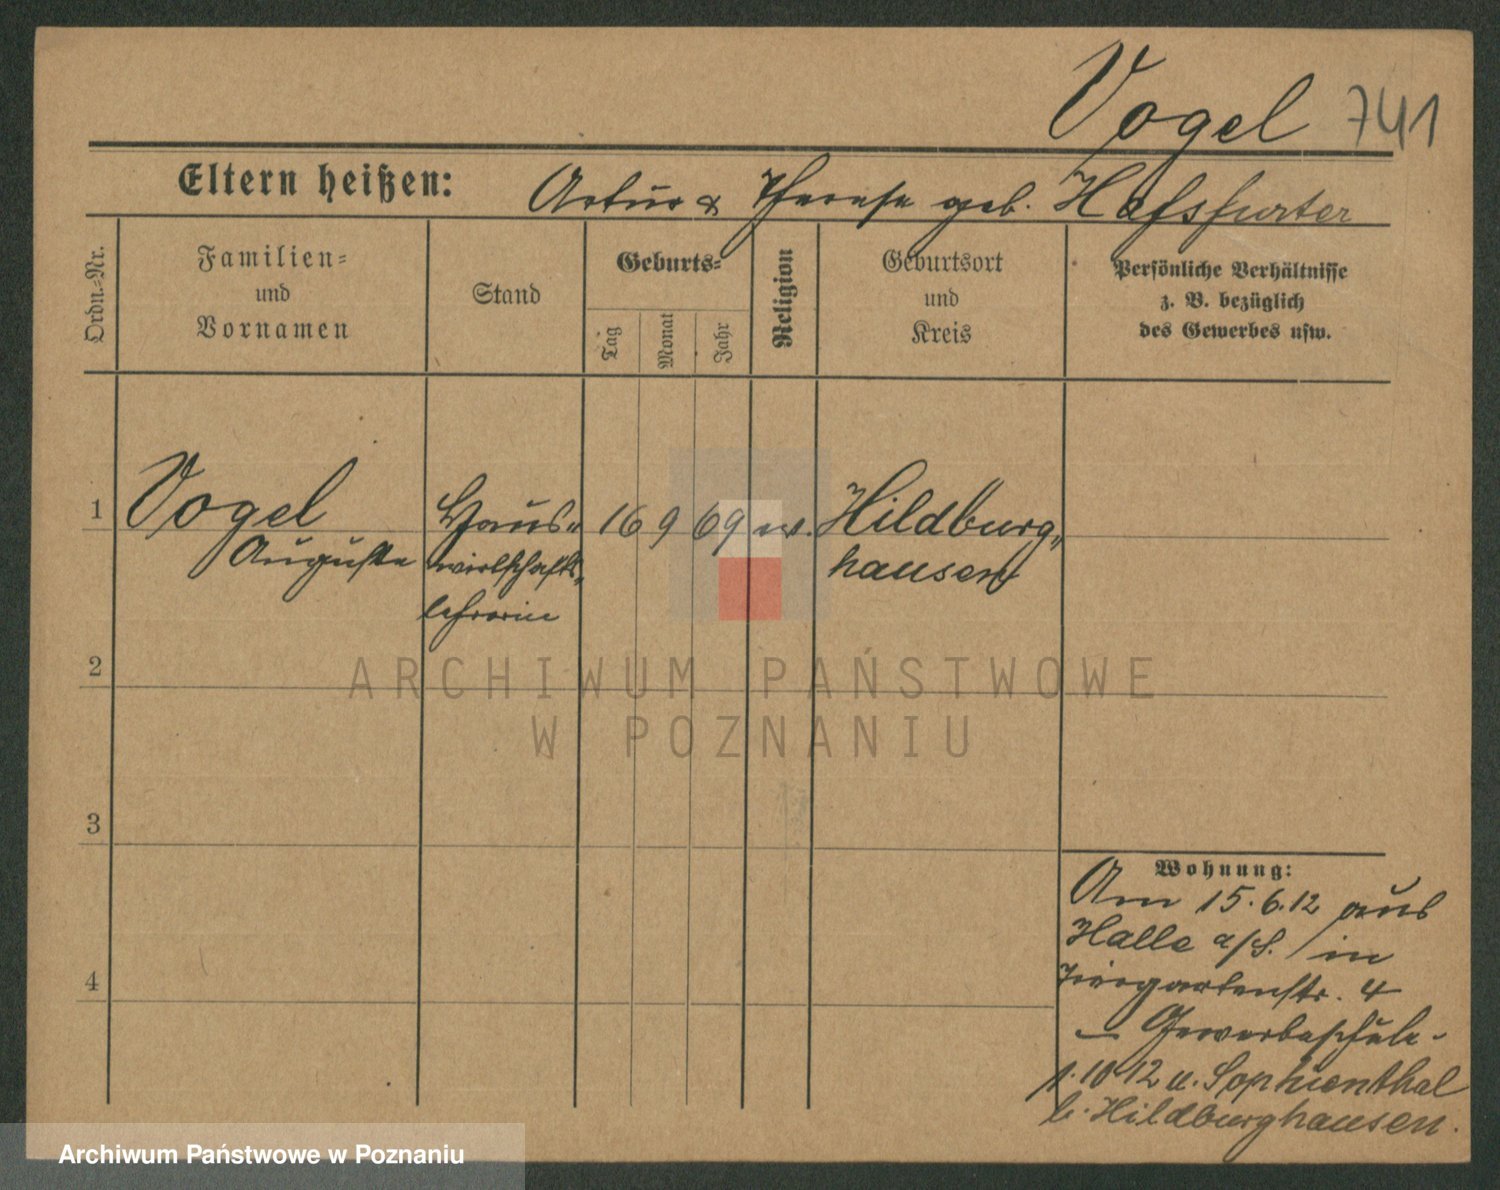 Vogel 741
Eltern heißen: Artur & Therese geb. Hassfurter
Ordn.-Nr.
Familien-
und
Vornamen
Stand
Geburts-
Tag
Monat
Jahr
Religion
Geburtsort
und
Kreis
Persönliche Verhältnisse
z. B. bezüglich
des Gewerbes usw.
1 Vogel Haus- 16 9 69 ev. Hildburg-
Auguste wirtschafts- hausen
lehrerin
2
3
4
Wohnung:
Am 15.6.12 aus
Halle a/S. in
Tiergartenstr. 4
— Gewerbeschule -
1.10.12 n. Sophienthal
b. Hildburghausen.
ARCHIWUM PAŃSTWOWE
W POZNANIU
Archiwum Państwowe w Poznaniu